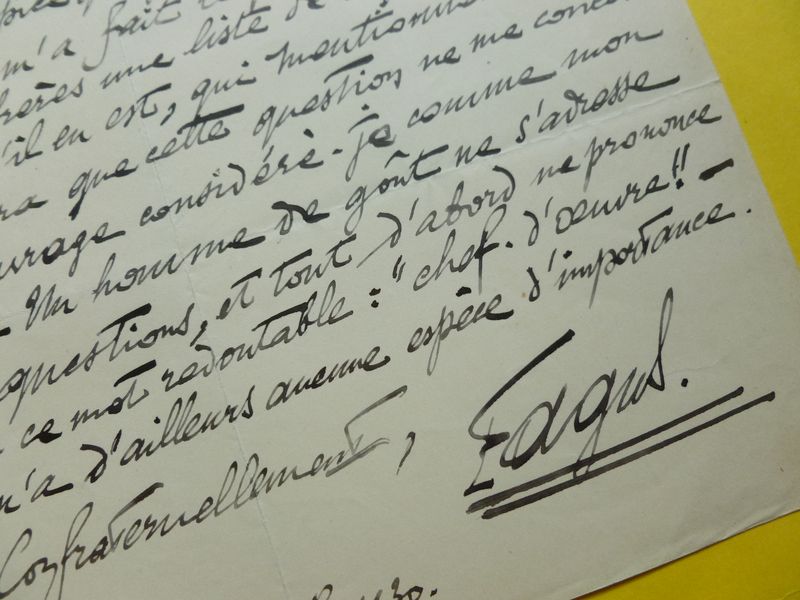 m'a fait
une liste de
s'il en est, qui mentionn
ra que cette question ne me conce
uvrage considéré. je comme mon
Un homme de goût ne s'adresse
questions, et tout d'abord ne prononce
ce mot redoutable : "chef-d'œuvre!! —
n'a d'ailleurs aucune espèce d'importance.
Confraternellement,
Fagus.